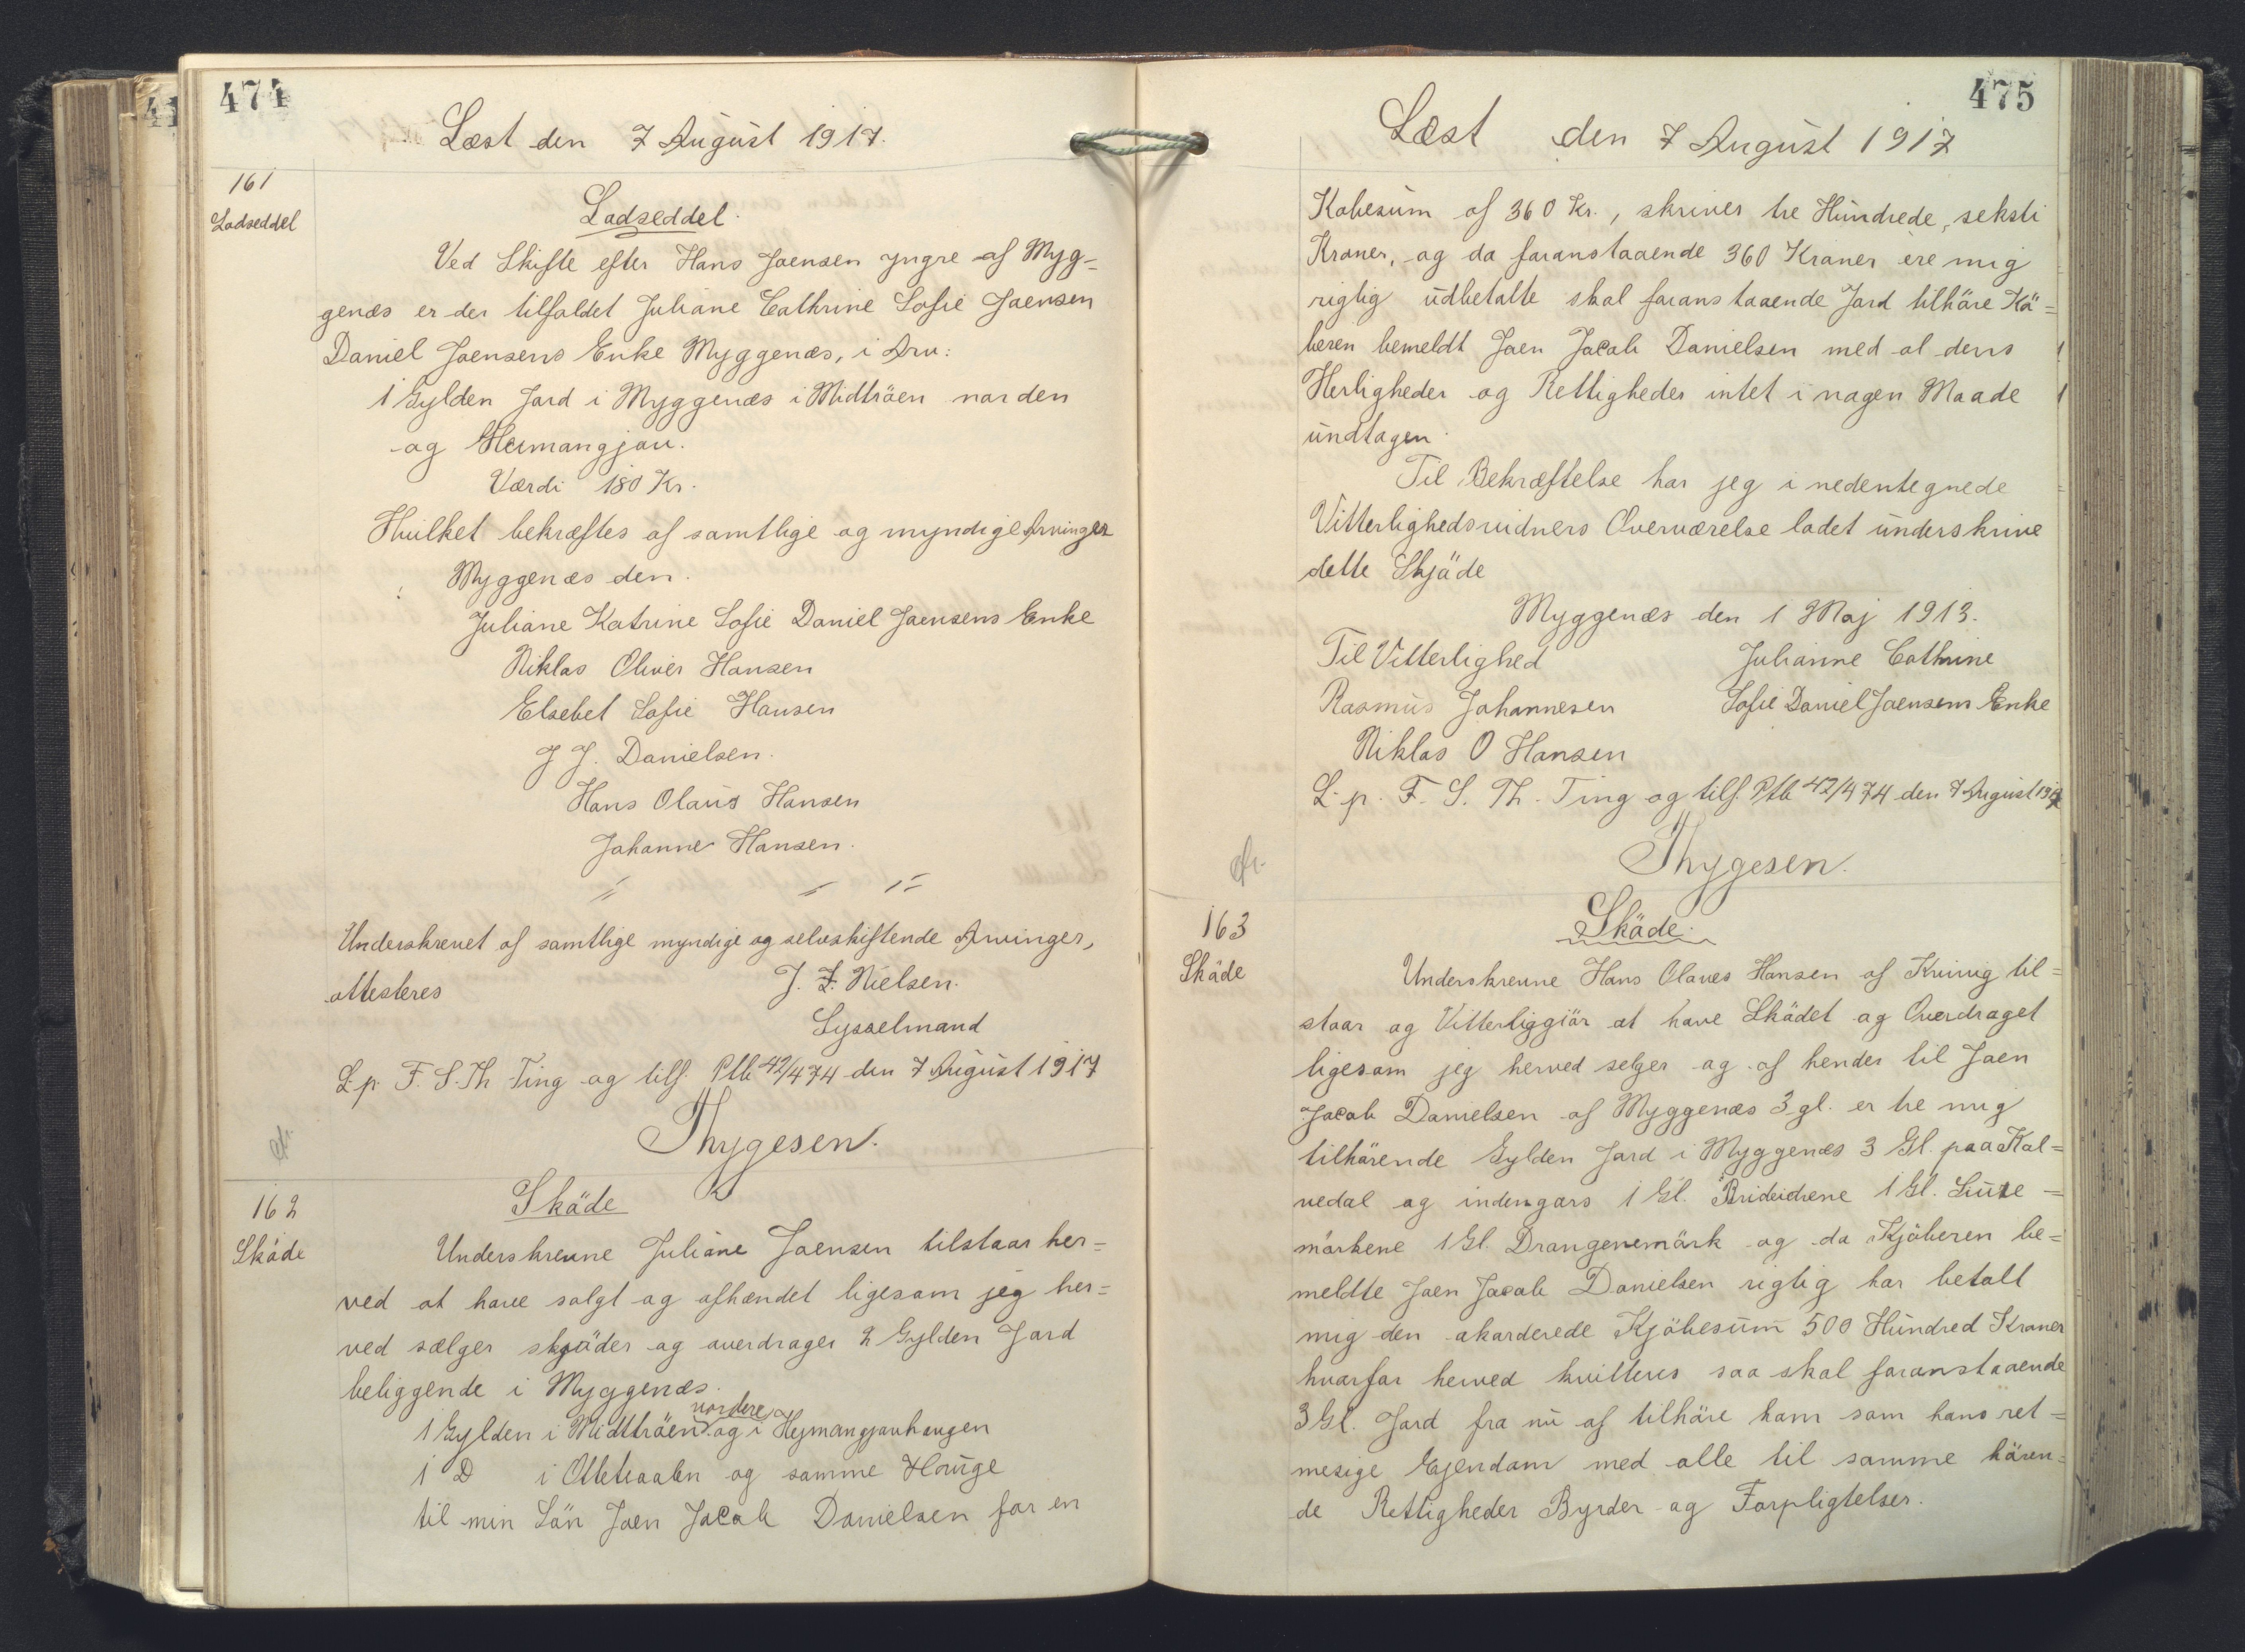 474
Læst den 7 August 1917.
161
Lodseddel
Lodseddel.
Ved Skifte efter Hans Joensen yngre af Myg-
genæs er der tilfaldet Juliane Cathrine Sofie Joensen
Daniel Joensens Enke Myggenæs, i Arv:
1 Gylden Jord i Myggenæs i Midtröen norden
og Heimangjov.
Værdi 180 Kr.
Hvilket bekræftes af samtlige og myndige Arvinger
Myggenæs den.
Juliane Katrine Sofie Daniel Joensens Enke
Niklas Oliver Hansen
Elsebet Sofie Hansen
J J. Danielsen.
Hans Olaus Hansen
Johanne Hansen.
Underskrevet af samtlige myndige og selvskiftende Arvinger,
attesteres J. F. Nielsen.
Sysselmand
L. p. F. S. Th Ting og tilf. Ptb 42/474 den 7 August 1917
Thygesen.
162
Sköde
Sköde
Underskrevne Juliane Joensen tilstaar her=
ved at have solgt og afhændet ligesom jeg her=
ved sælger skjöder og overdrager 2 Gylden Jord
beliggende i Myggenæs.
1 Gylden i Midtröen nordere og i Hejmangjovhaugen
1 D i Ottetraalen og samme Houge
til min Sön Joen Jacob Danielsen for en
475
Læst den 7 August 1917
Kobesum af 360 Kr., skriver tre Hundrede, seksti
Kroner, og da foranstaaende 360 Kroner ere mig
rigtig udbetalte skal foranstaaende Jord tilhöre Kö=
beren bemeldt Joen Jacob Danielsen med al dens
Herligheder og Rettigheder intet i nogen Maade
undtagen.
Til Bekræftelse har jeg i nedentegnede
Vitterlighedsvidners Overværelse ladet underskrive
dette Skjöde
Myggenæs den 1 Maj 1913.
Til Vitterlighed Julianne Cathrine
Rasmus Johannesen Sofie Daniel Joensens Enke
Niklas O Hansen
L. p. F. S. Th. Ting og tilf. Ptb 42/474 den 7 August 1917
Thygesen.
163
Sköde
Sköde.
Underskrevne Hans Olaves Hansen af Kvivig til=
staar og Vitterliggiör at have Sködet og Overdraget
ligesom jeg herved selger og af hender til Joen
Jacob Danielsen af Myggenæs 3 gl. er tre mig
tilhörende Gylden Jord i Myggenæs 3 Gl. paa Kal=
vedal og indengars 1 Gl. 1 Gl.
mörkene 1 Gl. Drangenemörk og da Kjöberen be=
meldte Joen Jacob Danielsen rigtig har betalt
mig den akorderede Kjöbesum 500 Hundred Kroner
hvorfor herved kvitteres saa skal foranstaaende
3 Gl. Jord fra nu af tilhöre ham som hans ret=
mesige Ejendom med alle til samme hören=
de Rettigheder Byrder og Forpligtelser.